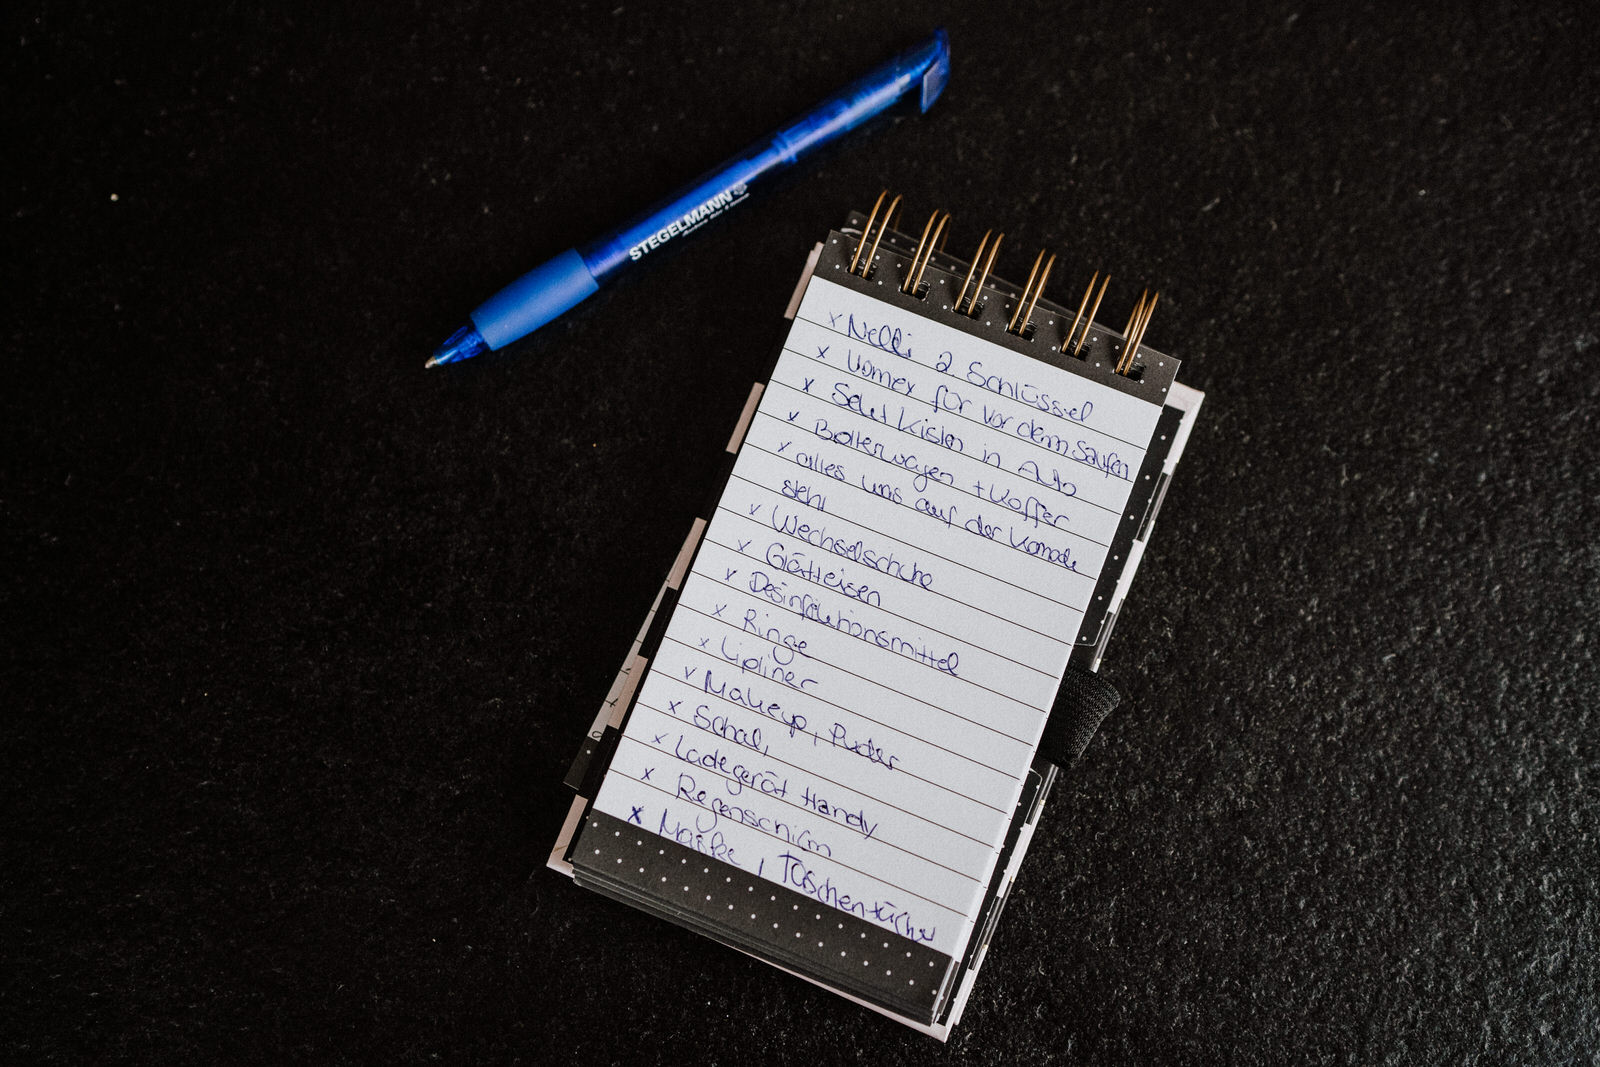 STEGELMANN
x Nelli 2 Schlüssel
x Vomex für vor dem Saufen
x Sekt Kisten in Auto
x Bollerwagen + Koffer
x alles was auf der Komode
steht
x Wechselschuhe
x Glätteisen
x Desinfektionsmittel
x Ringe
x Lipliner
x Makeup, Puder
x Schal,
x Ladegerät Handy
x Regenschirm
x Maske, Taschentücher